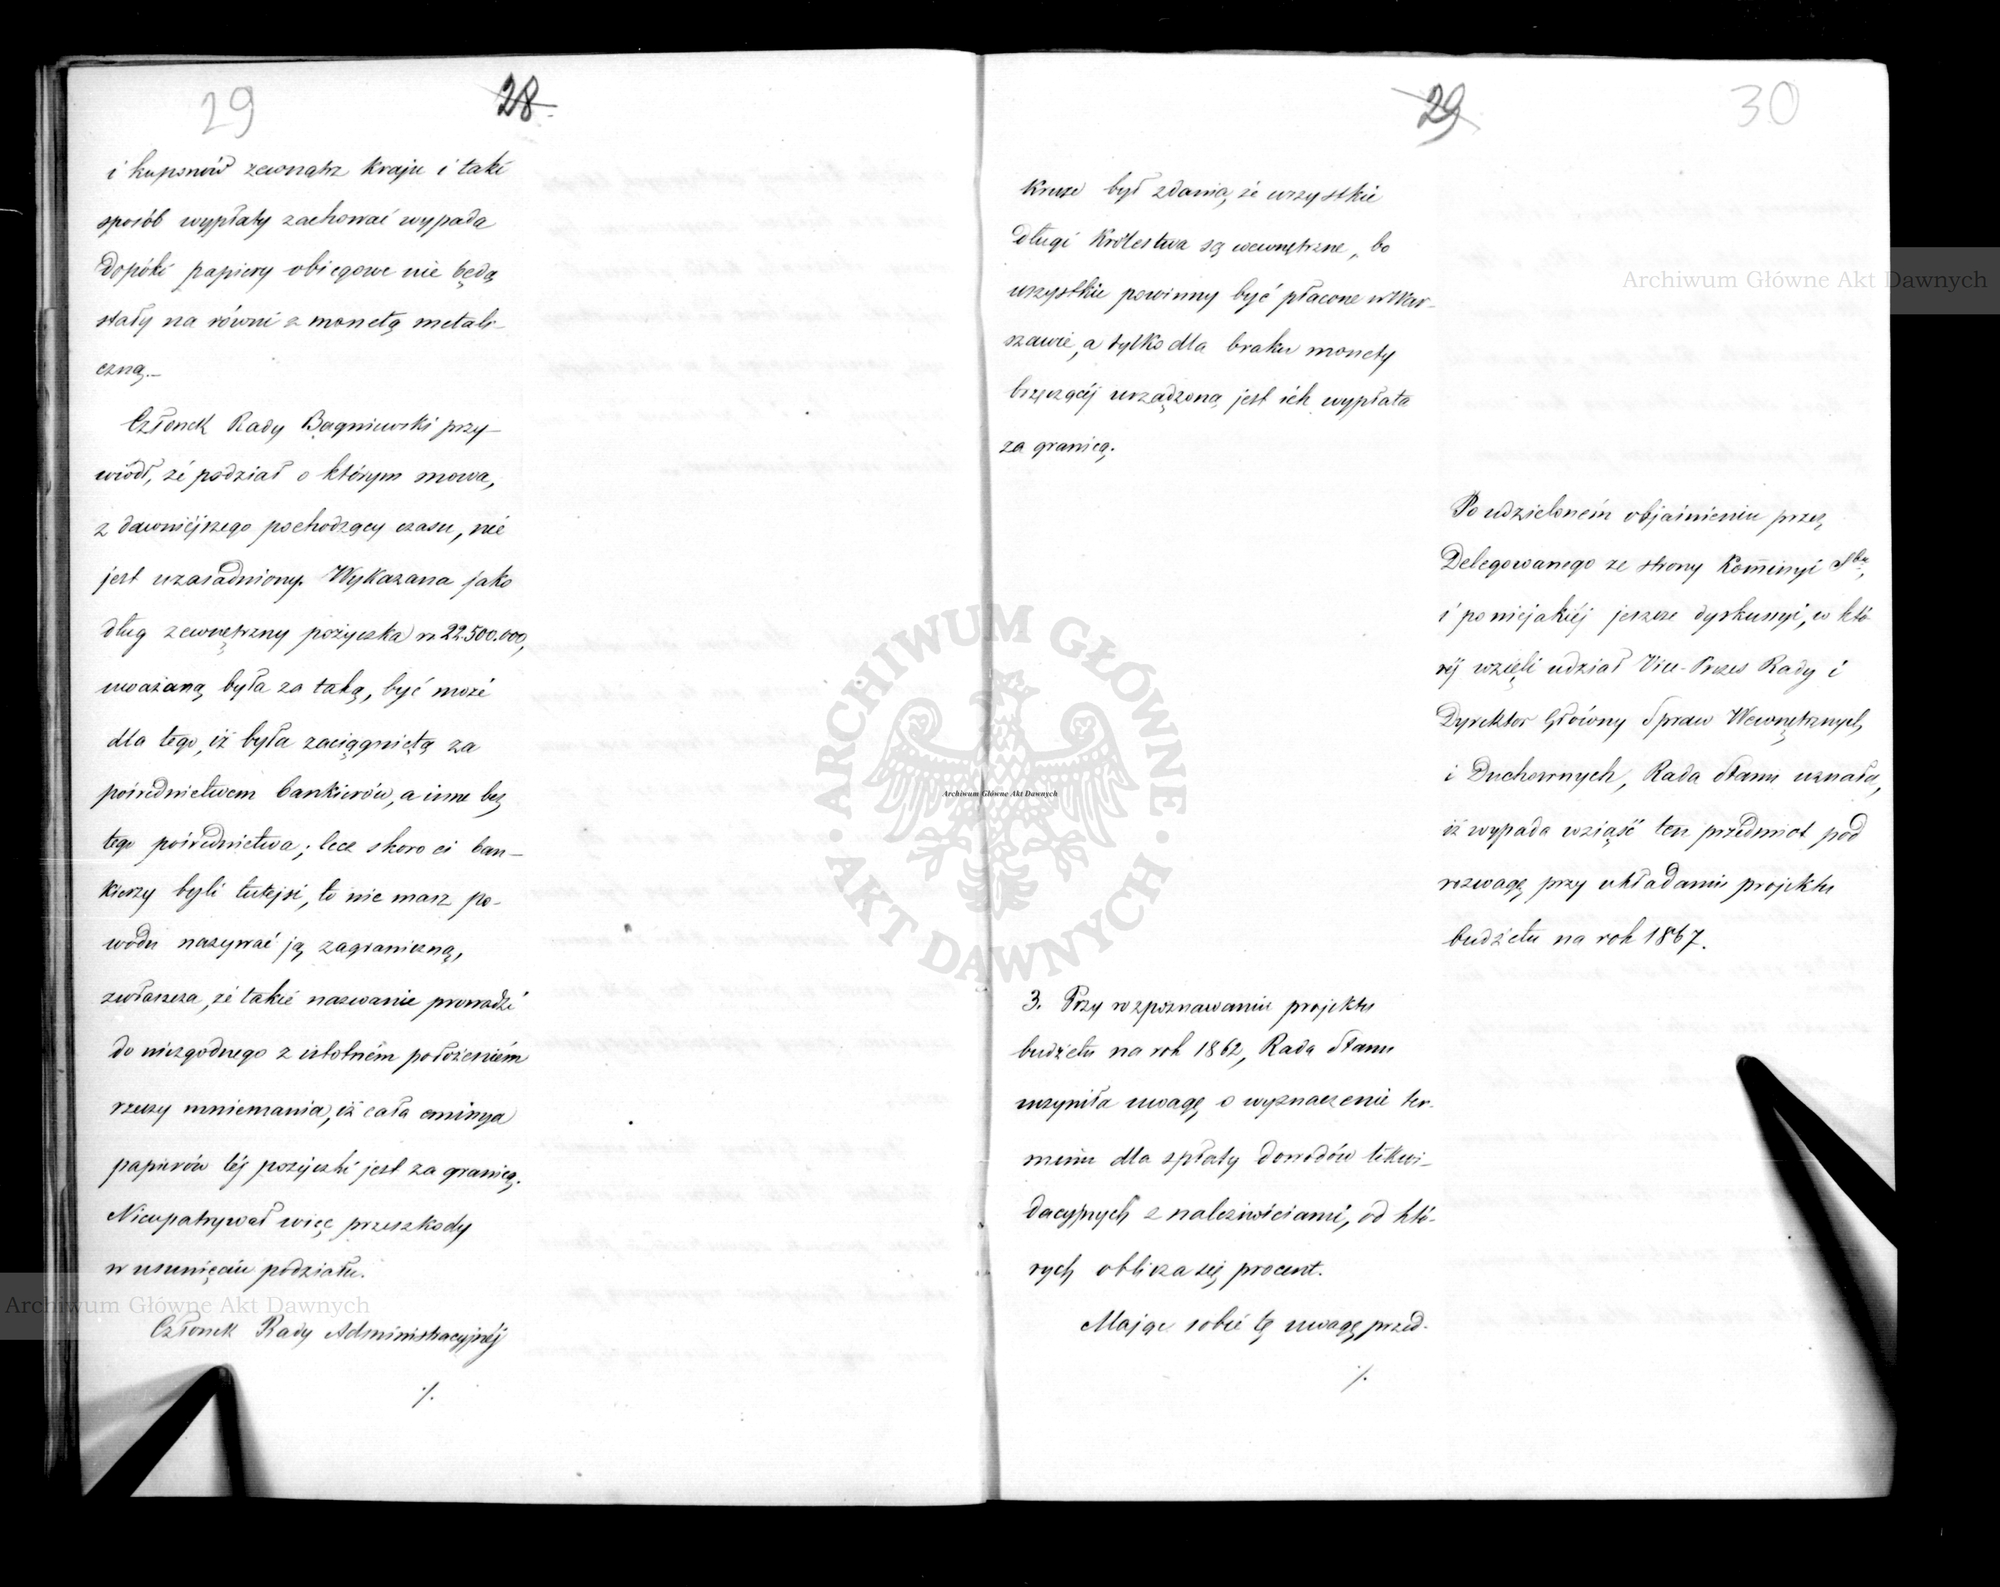 29
28
i kuponów zewnątrz kraju i taki
sposób wypłaty zachować wypada
dopóki papiery obiegowe nie będą
stały na równi z monetą metali-
czną.-
Członek Rady Bagniewski przy-
wiódł, że podział o którym mowa,
z dawniejszego pochodzący czasu, nie
jest uzasadniony. Wykazana jako
dług zewnętrzny pożyczka rs 22.500.000,
uważaną była za taką, być może
dla tego, iż była zaciągniętą za
pośrednictwem bankierów, a inne bez
tego pośrednictwa; lecz skoro ci ban-
kierzy byli tutejsi, to nie masz po-
wodu nazywać ją zagraniczną,
zwłaszcza, że takie nazwanie prowadzi
do niezgodnego z istotném położeniém
rzeczy mniemania, iż cała emissya
papierów téj pożyczki jest za granicą.
Nieupatrywał więc przeszkody
w usunięciu podziału.
Członek Rady Administracyjnéj
./.
29
30
Kruze był zdania, że wszystkie
długi Królestwa są wewnętrzne, bo
wszystkie powinny być płacone w War-
szawie, a tylko dla braku monety
brzęczącéj urządzoną jest ich wypłata
za granicą.
Po udzieloném objaśnieniu przez
Delegowanego ze strony Kommisyi Sbu,
i po niejakiéj jeszcze dyskussyi, w któ-
réj wzięli udział Vice-Prezes Rady i
Dyrektor Główny Spraw Wewnętrznych
i Duchownych, Rada Stanu uznała,
iż wypada wziąść ten przedmiot pod
rozwagę przy układaniu projektu
budżetu na rok 1867.
3. Przy rozpoznawaniu projektu
budżetu na rok 1862, Rada Stanu
uczyniła uwagę o wyznaczenie ter-
minu dla spłaty dowodów likwi-
dacyjnych z należności­ami, od któ-
rych oblicza się procent.
Mając sobie tę uwagę przed-
./.
Archiwum Główne Akt Dawnych
Archiwum Główne Akt Dawnych
Archiwum Główne Akt Dawnych
ARCHIWUM GŁÓWNE
AKT DAWNYCH